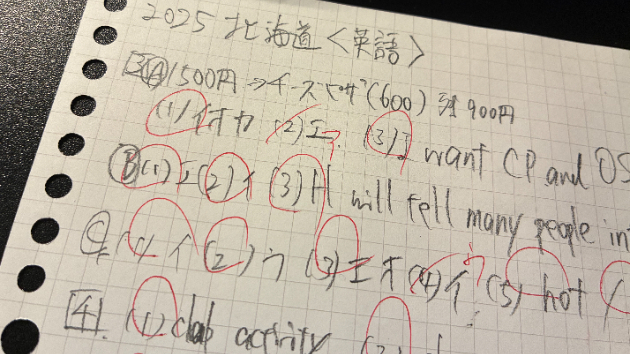 2025 北海道〈英語〉
[3](A) 1500円→チーズピザ(600) 残900円
(1) イオカ (2) エ (3) I want CP and OS
(B)(1) エ (2) イ (3) It will tell many people in
(C) (1) イ (2) ウ (3) エオ (4) イ (5) hot
[4]. (1) club activity